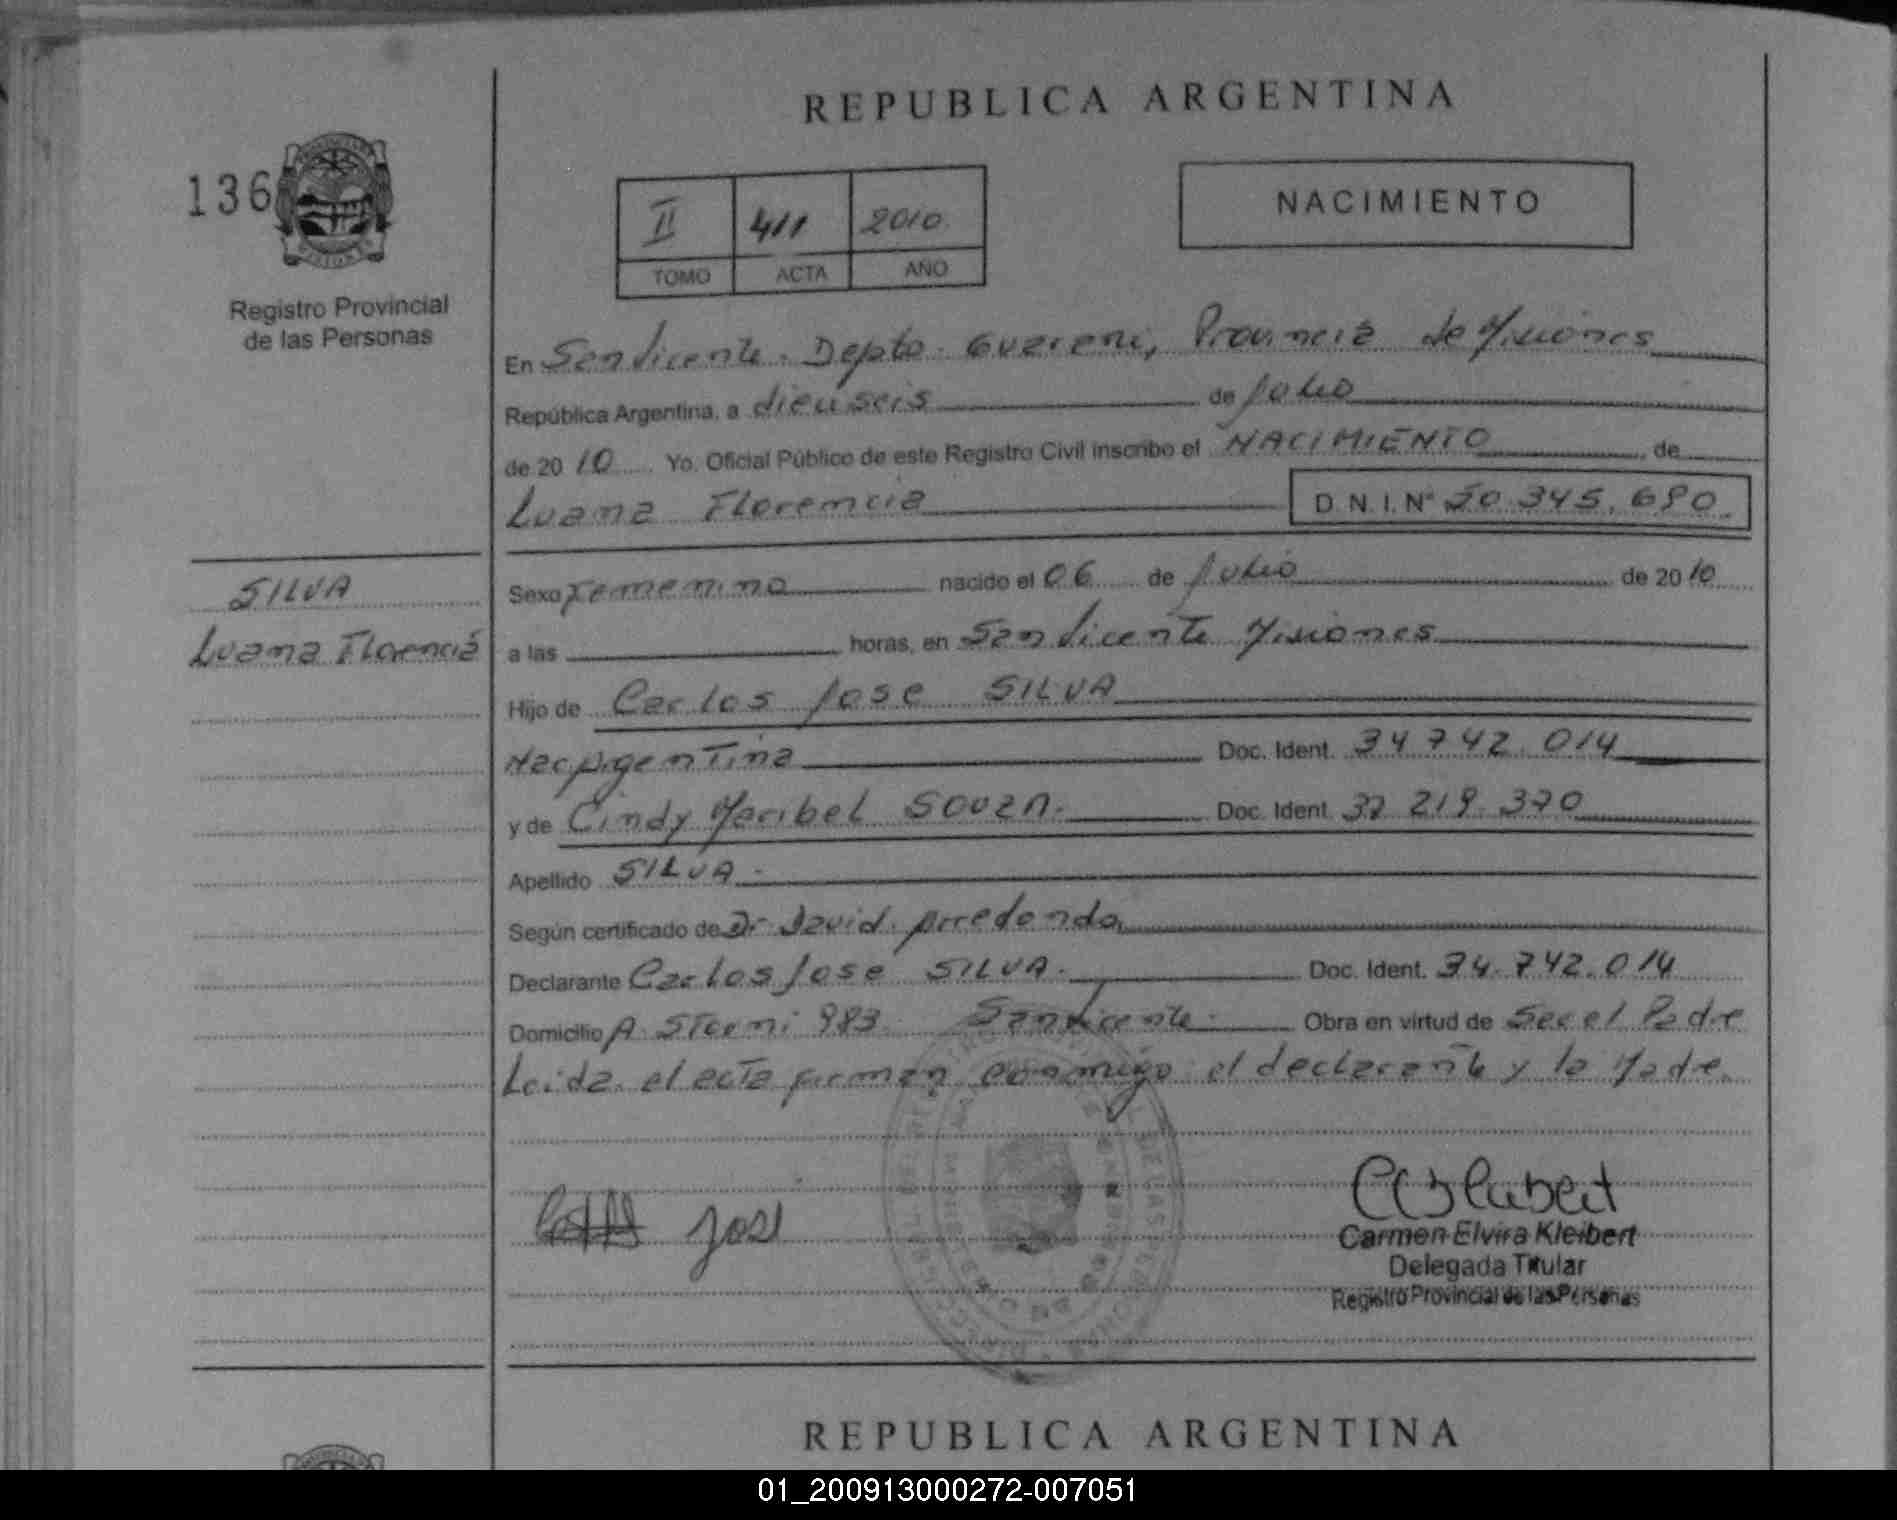 REPUBLICA ARGENTINA
136
II 411 2010
TOMO ACTA AÑO
NACIMIENTO
Registro Provincial
de las Personas
En San Vicente. Depto. Guarani, Provincia de Misiones
República Argentina, a dieciseis de Julio
de 20 10 Yo. Oficial Público de este Registro Civil inscribo el NACIMIENTO de
Luana Florencia D.N.I. Nº 50.345.690.
SILVA
Luana Florencia
Sexo Femenino nacido el 06 de Julio de 20 10
a las horas, en San Vicente Misiones
Hijo de Carlos Jose SILVA
Nac Argentina Doc. Ident. 34 742.014
y de Cindy Maribel SOUZA. Doc. Ident. 37 219.370
Apellido SILVA.-
Según certificado de Dr David Arredondo,
Declarante Carlos Jose SILVA. Doc. Ident. 34.742.014
Domicilio A Storni 983 San Vicente. Obra en virtud de Ser el Padre
Leida el acta firman conmigo el declarante y la Madre.
Jose
Carmen Elvira Kleibert
Delegada Titular
Registro Provincial de las Personas
REPUBLICA ARGENTINA
01_200913000272-007051